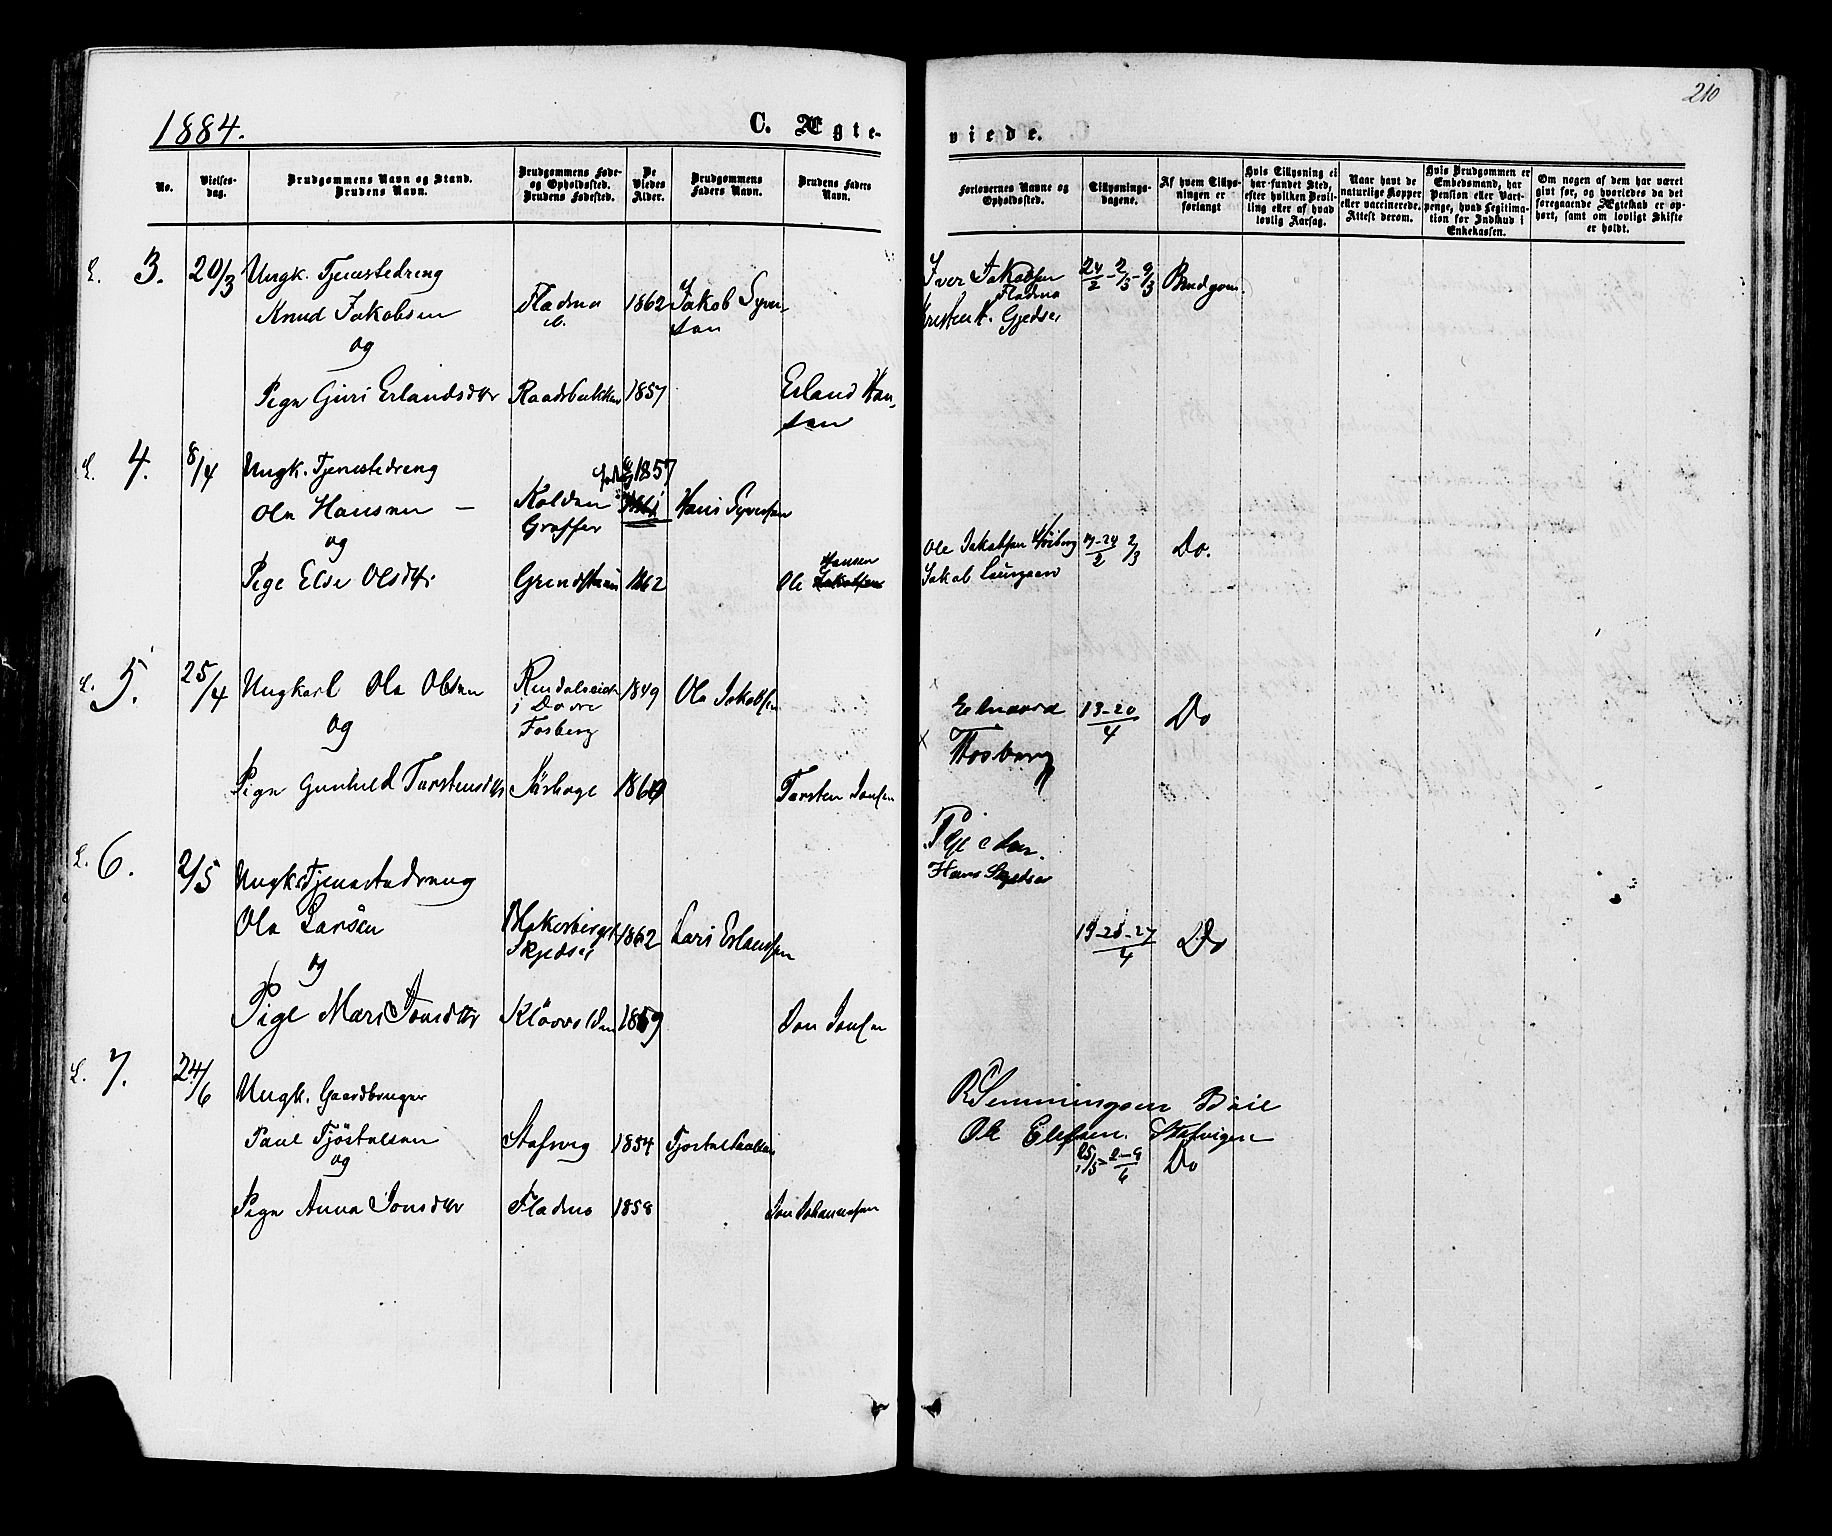 210
1884.
C. Ægte-
viede.
No.
Vielses-
dag.
Brudgommens Navn og Stand.
Brudens Navn.
Brudgommens Føde-
og Opholdssted.
Brudens Fødested.
De
Viedes
Alder.
Brudgommens
Faders Navn.
Brudens Faders
Navn.
Forlovernes Navne og
Opholdssted.
Tillysnings-
dagene.
Af hvem Tillys-
ningen er
forlangt
Hvis Tillysning ei
har fundet Sted,
efter hvilken Bevil-
ling eller af hvad
lovlig Aarsag.
Naar havt de
naturlige Kopper
eller vaccinerede.
Attest derom.
Hvis Brudgommen er
Embedsmand, har
Pension eller Vart-
penge, hvad Legitima-
tion for Indskud i
Enkekassen.
Om nogen af dem har været
gift før, og hvorledes da det
foregaaende Ægteskab er op-
hørt, samt om lovligt Skifte
er holdt.
L. 3. 20/3 Ungk. Tjenestedreng
Knud Jakobsen Fladmo 1862 Jakob Syver-
sen
og
Pige Guri Erlandsdtr Raadsbakken 1857 Erland Han-
sen
Iver Jakobsen
Fladmo
Kristen K. Gjedser
24/2 - 2/3 - 9/3 Brudgom.
L. 4. 8/4 Ungk. Tjenestedreng 1857
Ole Hansen — Kolden Hans Syversen
Graffer
og
Pige Else Olsdtr Grindstuen 1862 Ole Hansen
Ole Jakobsen
Jakob
24/2 2/3 Do.
L. 5. 25/4 Ungkarl Ole Olsen 1849 Ole Jakobsen
i Dovre
og Fosberg
Pige Gunhild Torstensdtr Sørhage 1860 Torsten Jonsen
13-20/4 Do
L. 6. 2/5 Ungk. Tjenestedreng
Ola Larsen 1862 Lars Erlandsen
Skjedser
og
Pige Mari Jonsdtr Kløvvolden 1859 Jon Jonsen
Hans Skjedser
27/4 Do
L. 7. 24/6 Ungk. Gaardbruger
Paul Tjøstulsen Stafsvig 1854 Tjøstul Paulsen
og
Pige Anna Jonsdtr Fladmo 1858 Jon Johannesen
R Semmingsen
Ole Elefsen. Stafvigen
25/5 2-9/6 Do